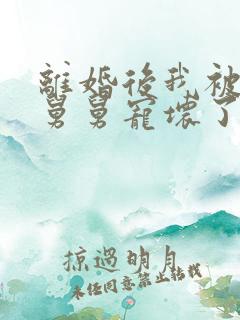 離婚後我被
舅舅寵壞了
掠過明月
未任同意禁止転我